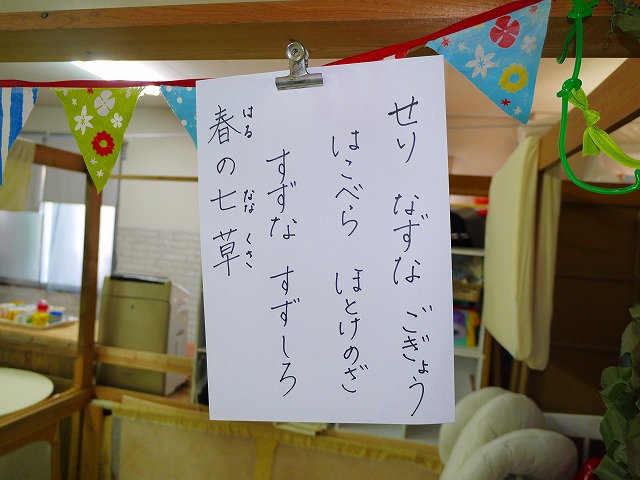 せり なずな ごぎょう
はこべら ほとけのざ
すずな すずしろ
春の七草
はる なな くさ